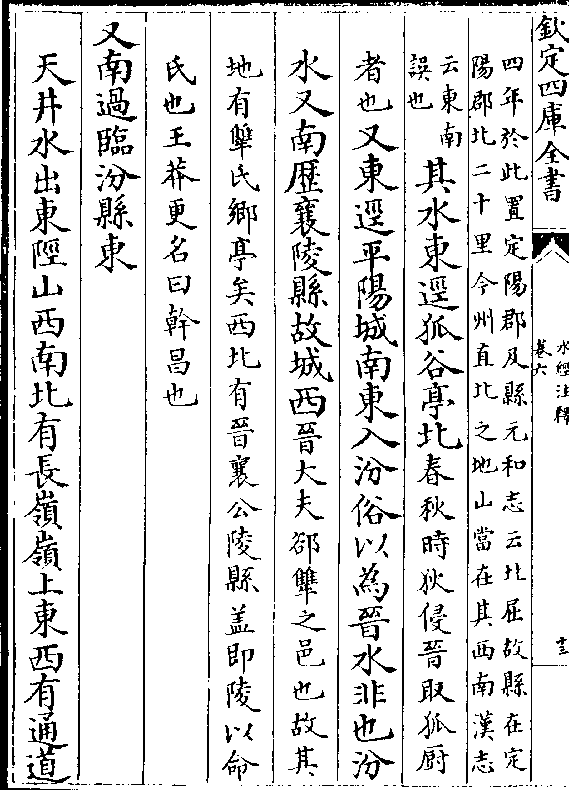 欽定四庫全書
水經注釋
卷六
十三
四年於此置定陽郡及縣元和志云北屈故縣在定
陽郡北二十里今州直北之地山當在其西南漢志
云東南
誤也
其水東逕狐谷亭北春秋時狄侵晉取狐厨
者也又東逕平陽城南東入汾俗以為晉水非也汾
水又南歷襄陵縣故城西晉大夫郤犨之邑也故其
地有犨氏鄉亭矣西北有晉襄公陵縣盖即陵以命
氏也王莽更名曰幹昌也
又南過臨汾縣東
天井水出東陘山西南北有長嶺嶺上東西有通道